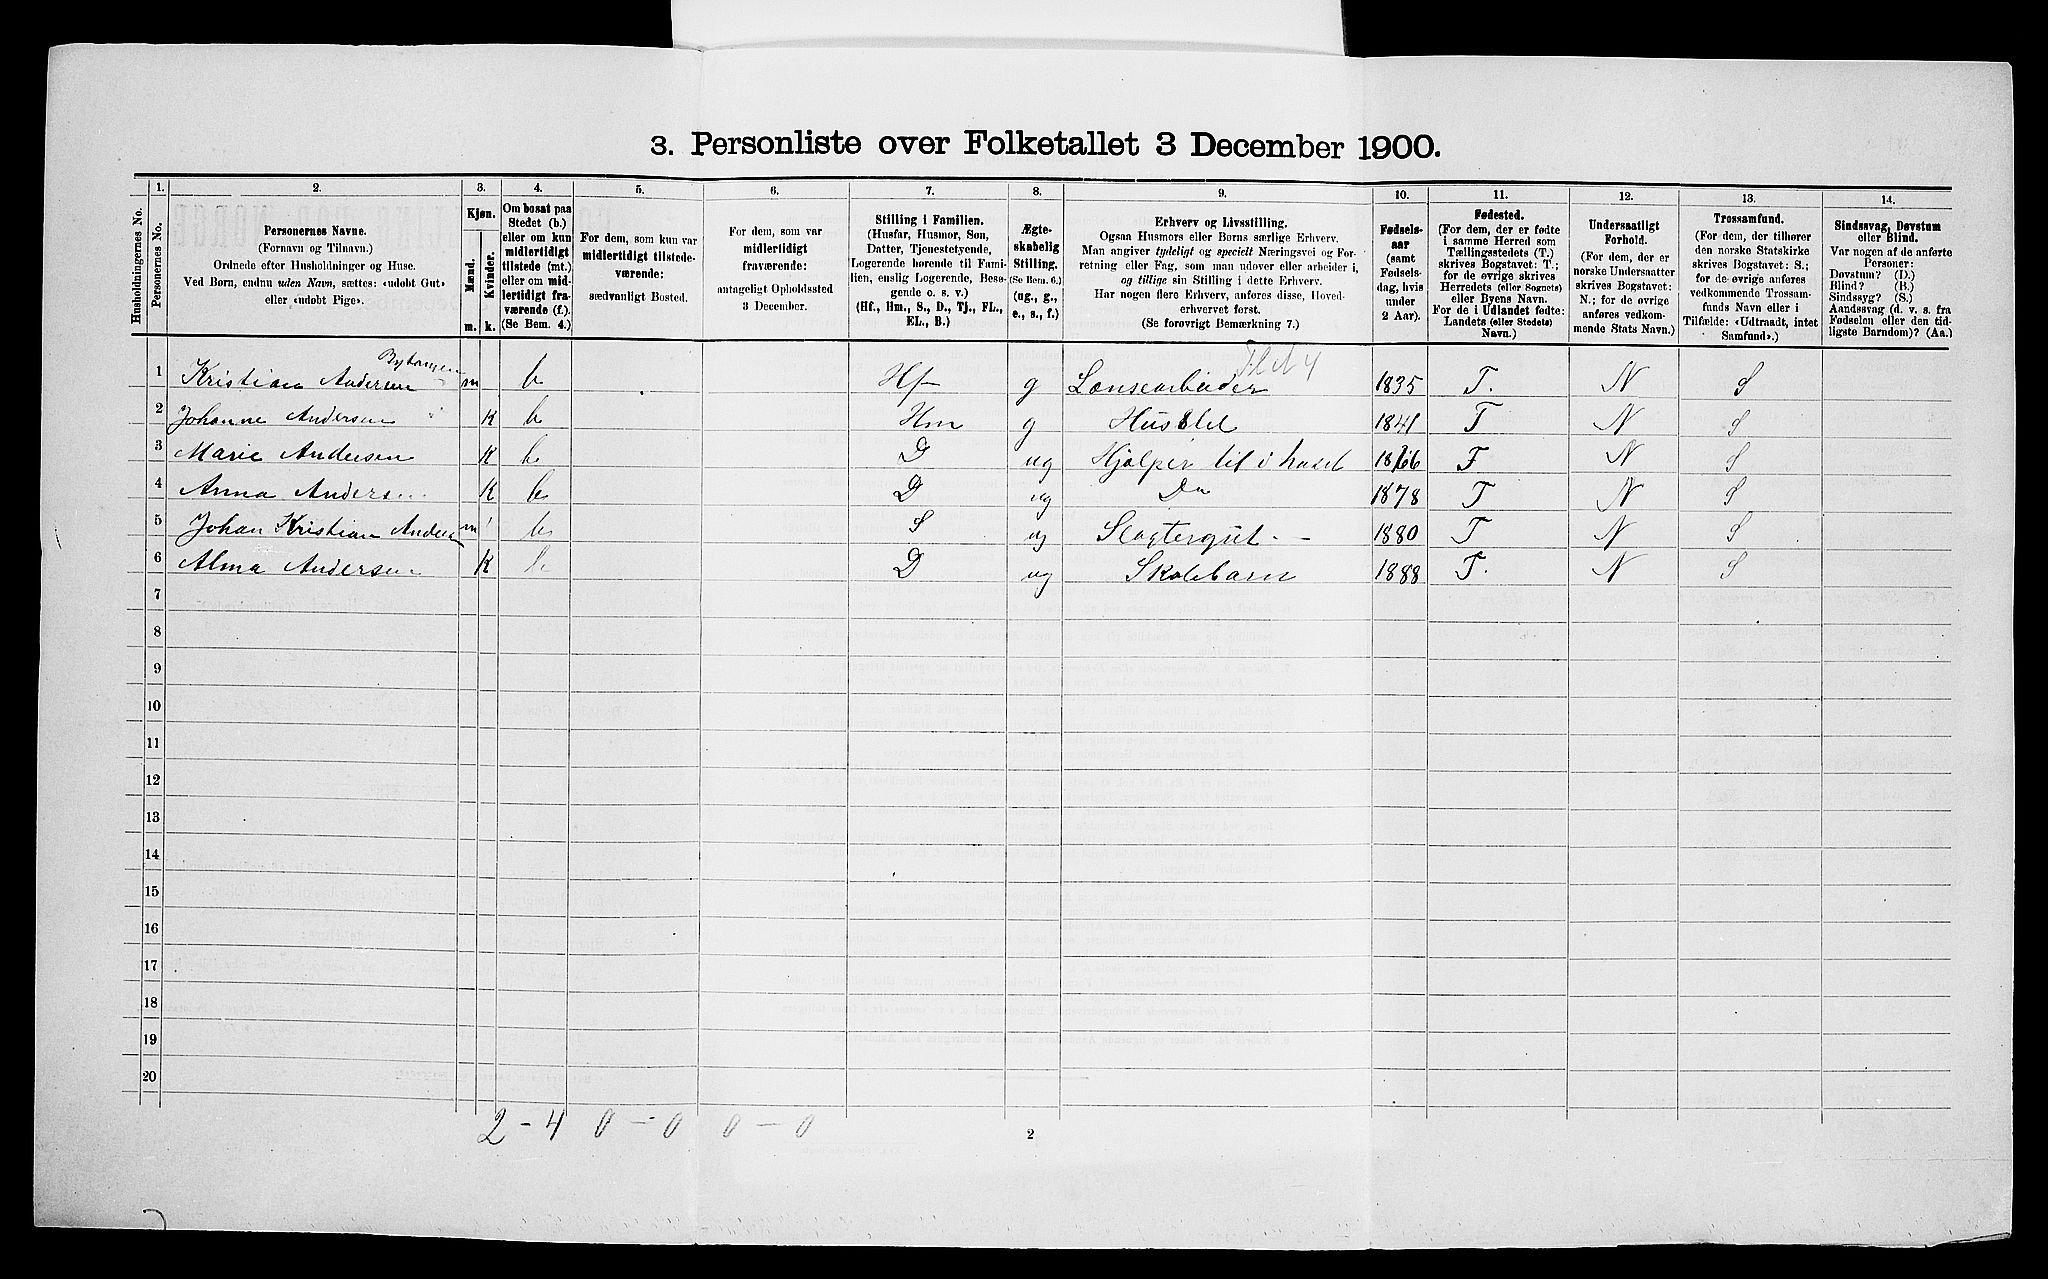 3. Personliste over Folketallet 3 December 1900.
Husholdningernes No.
1.
Personernes No.
2.
Personernes Navne.
(Fornavn og Tilnavn.)
Ordnede efter Husholdninger og Huse.
Ved Børn, endnu uden Navn, sættes: «udobt Gut»
eller «udobt Pige».
3.
Kjøn.
Mænd.
Kvinder.
m. k.
4.
Om bosat paa
Stedet (b.)
eller om kun
midlertidigt
tilstede (mt.)
eller om mid-
lertidigt fra-
værende (f.).
(Se Bem. 4.)
5.
For dem, som kun var
midlertidigt tilstede-
værende:
sædvanligt Bosted.
6.
For dem, som var
midlertidigt
fraværende:
antageligt Opholdssted
3 December.
7.
Stilling i Familien.
(Husfar, Husmor, Søn,
Datter, Tjenestetyende,
Logerende hørende til Fami-
lien, enslig Logerende, Besø-
gende o. s. v.)
(Hf., Hm., S., D., Tj., FL.,
EL., B.)
8.
Ægte-
skabelig
Stilling.
(Se Bem. 6.)
(ug., g.,
e., s., f.)
9.
Erhverv og Livsstilling.
Ogsaa Husmors eller Børns særlige Erhverv.
Man angiver tydeligt og specielt Næringsvei og For-
retning eller Fag, som man udover eller arbeider i,
og tillige sin Stilling i dette Erhverv.
Har nogen flere Erhverv, anføres disse, Hoved-
erhvervet først.
(Se forøvrigt Bemærkning 7.)
10.
Fødsels-
aar
(samt
Fødsels-
dag, hvis
under
2 Aar).
11.
Fødested.
(For dem, der er fødte
i samme Herred som
Tællingsstedets (T.)
skrives Bogstavet: T.;
for de øvrige skrives
Herredets (eller Sognets)
eller Byens Navn.
For de i Udlandet fødte:
Landets (eller Stedets)
Navn.)
12.
Undersaatligt
Forhold.
(For dem, der er
norske Undersaatter
skrives Bogstavet:
N.; for de øvrige
anføres vedkom-
mende Stats Navn.)
13.
Trossamfund.
(For dem, der tilhører
den norske Statskirke
skrives Bogstavet: S.;
for de øvrige anføres
vedkommende Trossam-
funds Navn eller i
Tilfælde: «Udtraadt, intet
Samfund».)
14.
Sindssvag, Døvstum
eller Blind.
Var nogen af de anførte
Personer:
Døvstum? (D.)
Blind? (B.)
Sindssyg? (S.)
Aandssvag (d. v. s. fra
Fødselen eller den tid-
ligste Barndom)? (Aa.)
1 Kristian Andersen m b Hf g Lænsearbeider 1835 T. N S
2 Johanne Andersen K b Hm g Husstel 1841 T N S
3 Marie Andersen K b D ug Hjælper til i huset 1866 T N S
4 Anna Andersen K b D ug Do 1878 T N S
5 Johan Kristian Andersen m b S ug Slagtergut 1880 T N S
6 Alma Andersen K b D ug Skolebarn 1888 T. N S
7
8
9
10
11
12
13
14
15
16
17
18
19
20
2 - 4 0 - 0 0 - 0
2